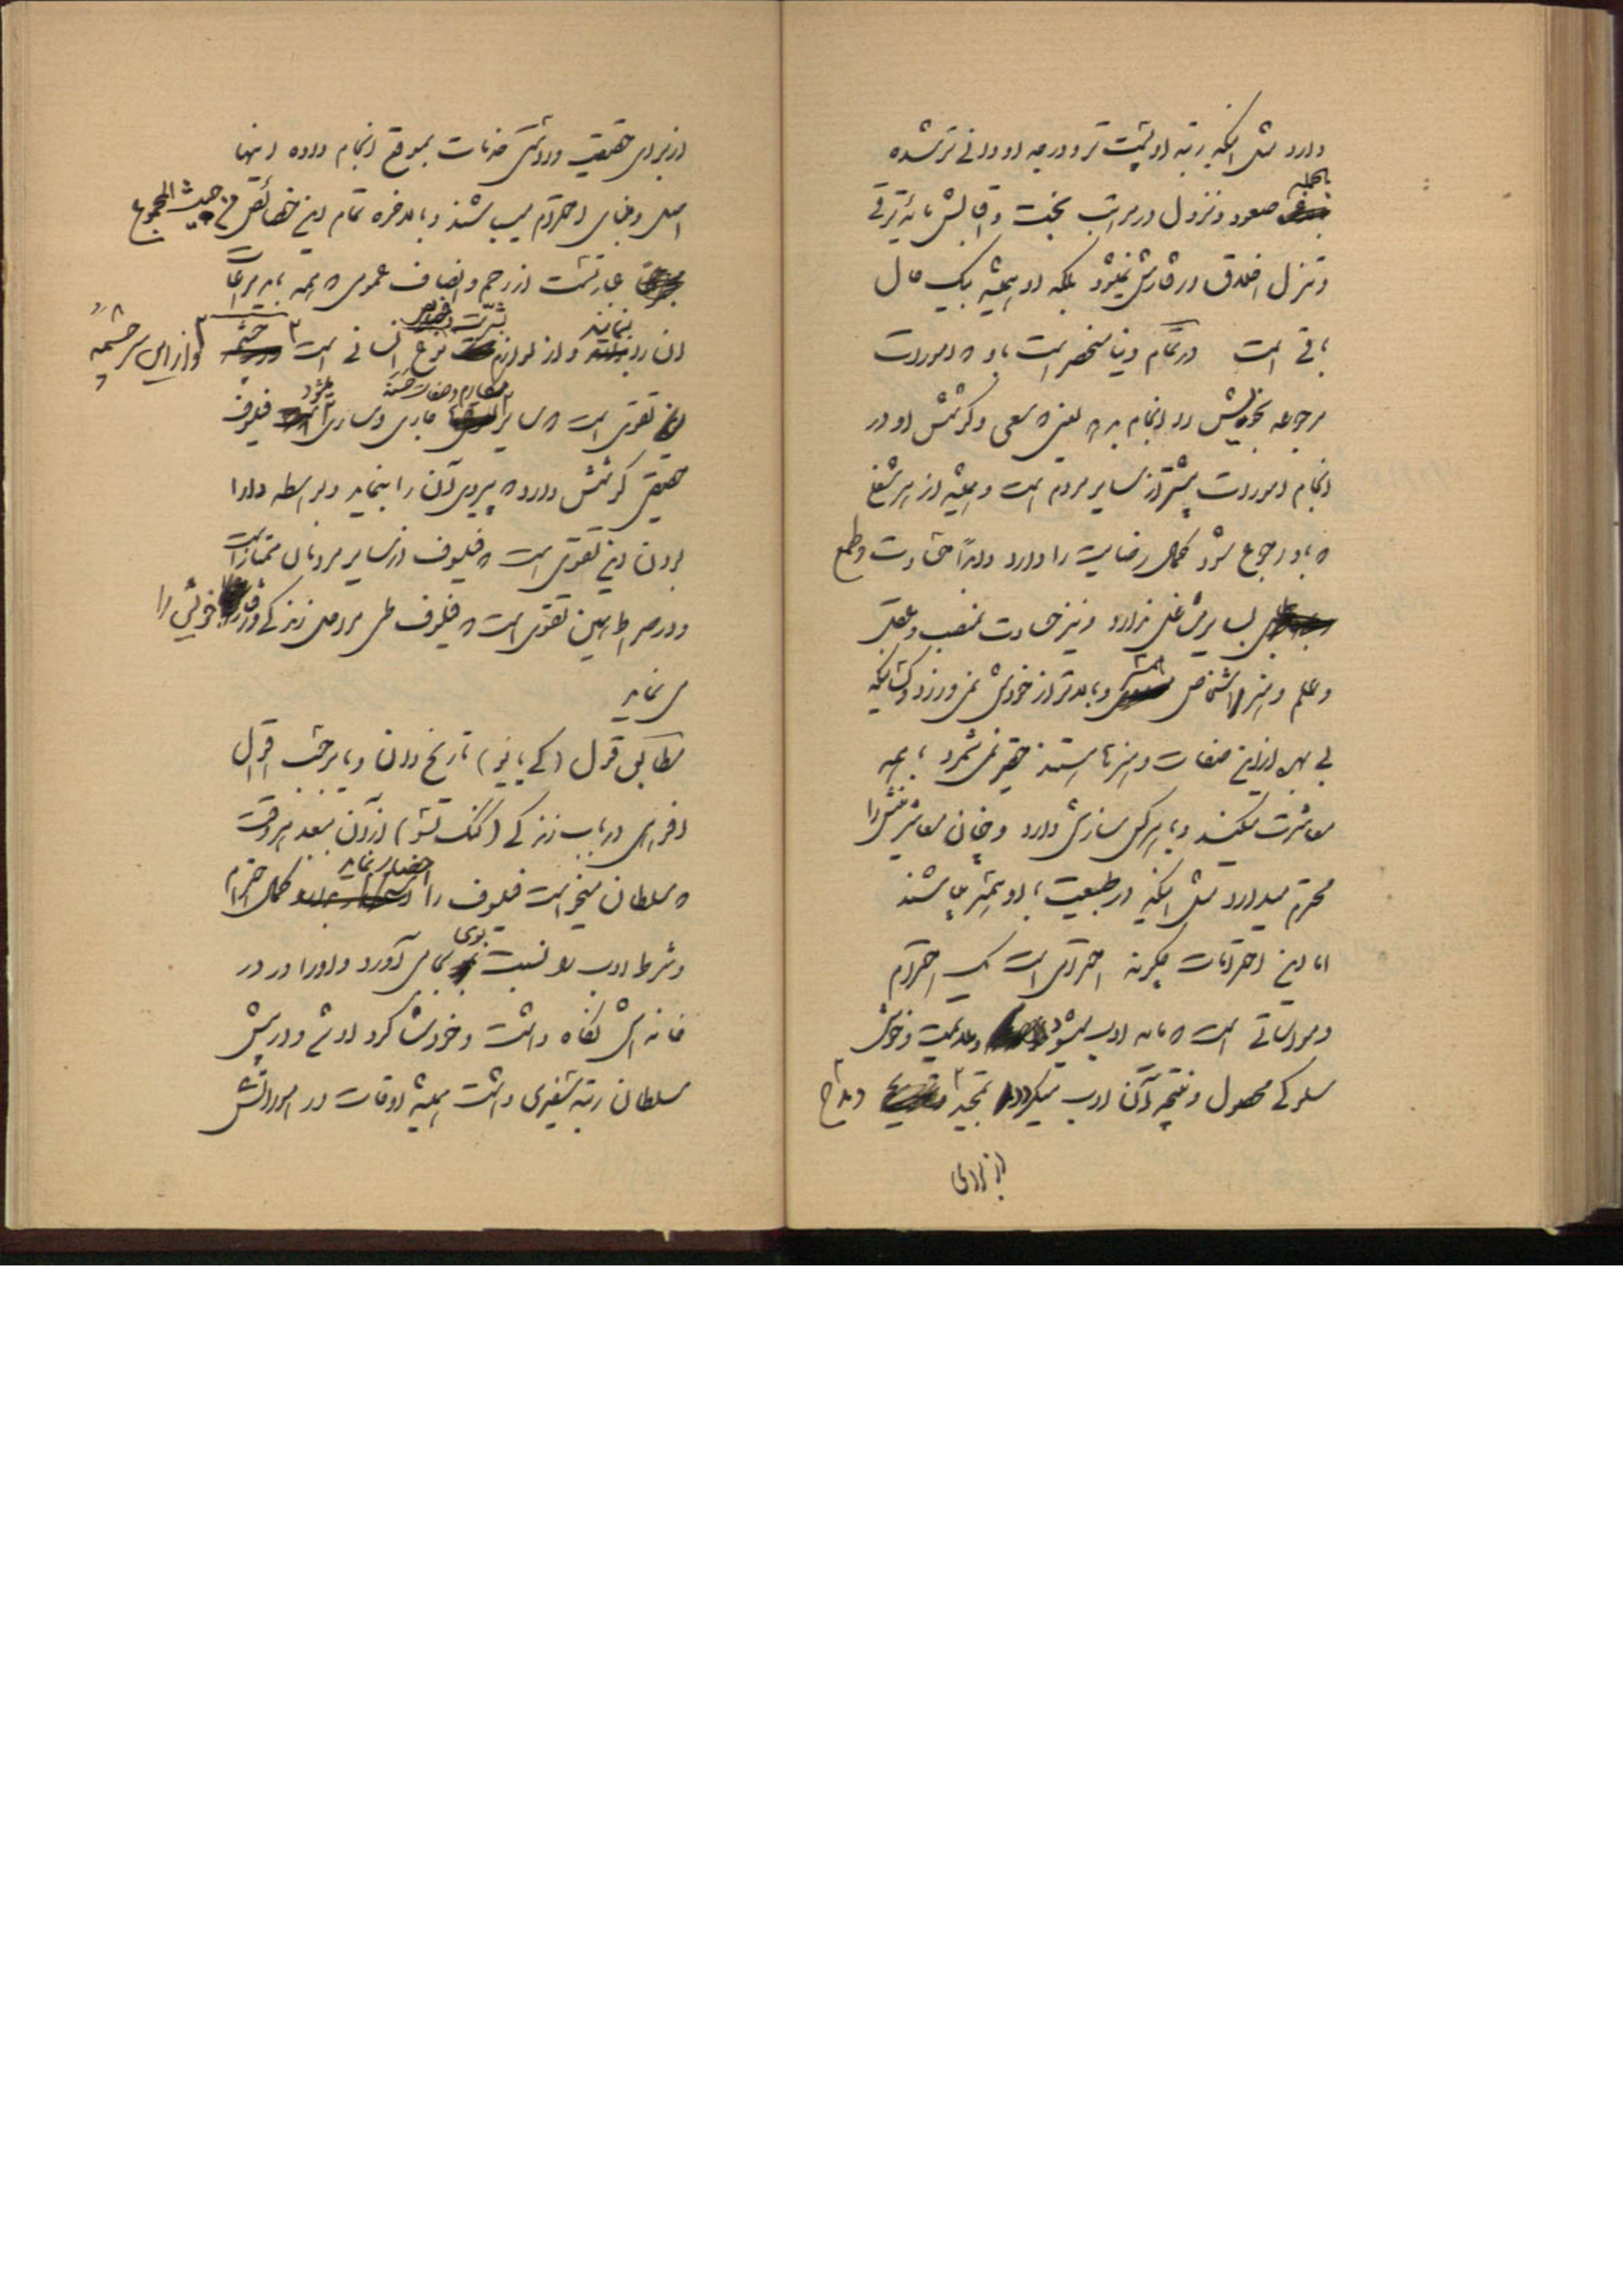 دارد مثل اینکه رتبه او پست تر و درجه او دانی تر شده
بالجمله صعود و نزول در مراتب بخت و اقبالش مایه ترقی
و تنزل اخلاق و رفتارش نمیشود بلکه او همیشه بیک حال
باقی است در تمام دنیا منحصر است باو که امورات
مرجوعه بخویش را انجام بدهد یعنی سعی و کوشش او در
انجام امورات بیشتر از سایر مردم است و همیشه از هر شغلی
که باو رجوع شود کمال رضایت را دارد و ابداً حسادت و طمع
بسایر مشاغل ندارد و نیز حسادت بمنصب و عقل
و علم و هنر اشخاص وبالاتر از خودش نمی ورزد و کسانیکه
بی بهره از این صفات و هنرها هستند حقیر نمی شمرد با همه
معاشرت میکند و با هر کس سازش دارد و چنان معاشرینش را
محترم میدارد مثل اینکه در طبیعت با او همشیره می باشند
اما این احترامات چگونه احترامی است یک احترام
و مواساتی است که مایه ادب میشود و ملایمت و خوش
سلوکی محصول و نتیجه آن ادب میگردد نتیجه و مداح
از برای
از برای حقیقت و روشنی خدمات بموقع انجام داده اینها
اصل و بنای احترام میباشند و بالاخره تمام این خصائص من حیث المجموع
عبارتست از رحم و انصاف عمومی که همه باید مراعات
آن را بنمایند و از لوازم بشریت و نوع انسانی است و از این سرچشمه
تقوی است که سایر مکارم و صفات حسنه جاری و ساری میشود فیلسوف
حقیقی کوشش دارد که پیروی آن را بنماید و بواسطه دارا
بودن این تقوی است که فیلسوف از سایر مردمان ممتاز است
و در صراط همین تقوی است که فیلسوف طی مراحل زندگی و رفتار خویش را
می نماید
مطابق قول (کی یانیو) تاریخ دان و بر حسب اقوال
افواهی در باب زندگی (کنگ تسو) از آن ببعد هر وقت
که سلطان میخواست فیلسوف را احضار نماید کمال احترام
و شرط ادب را نسبت بوی بجا می آورد و او را در
خانه اش نگاه داشت و خودش شاگرد او شد و در پیش
سلطان رتبه سفیری داشت همیشه اوقات در امور اتش